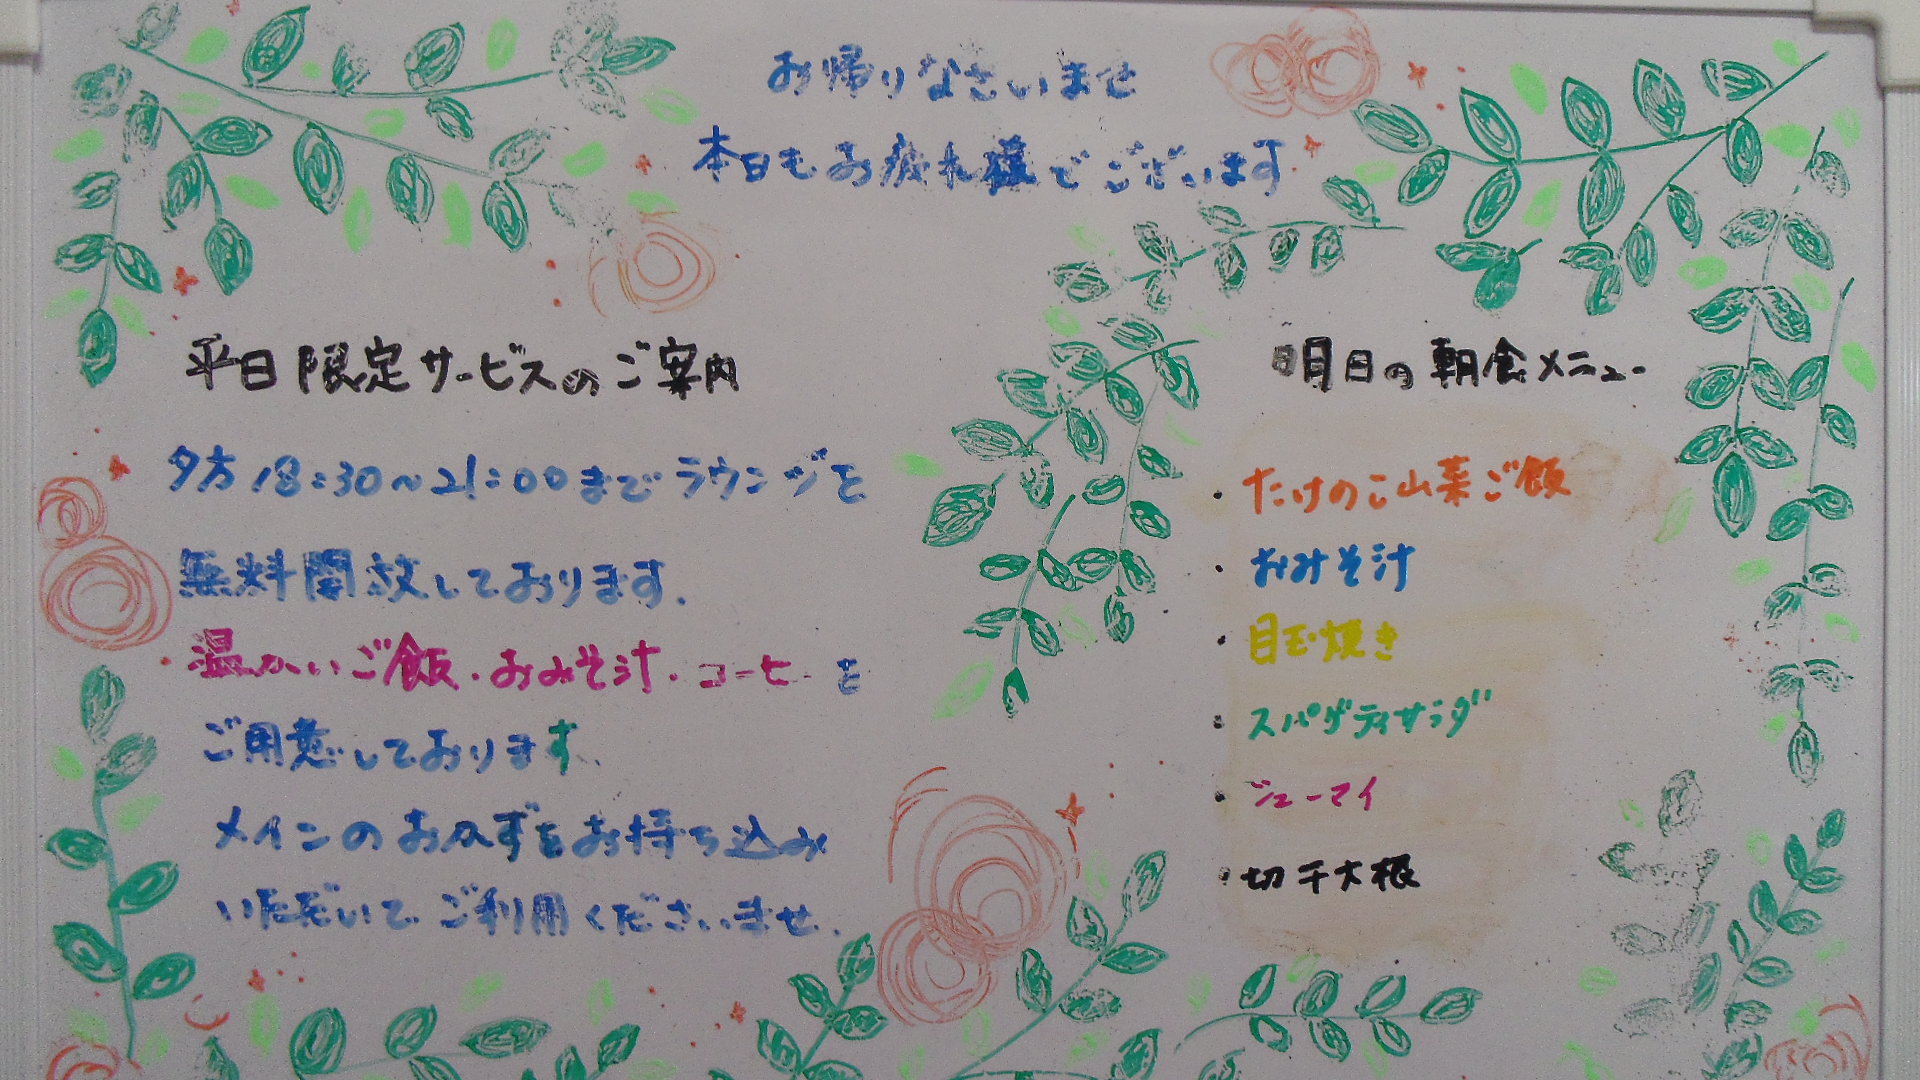 お帰りなさいませ
本日もお疲れ様でございます
平日限定サービスのご案内
夕方18:30～21:00までラウンジを
無料開放しております。
温かいご飯・おみそ汁・コーヒーを
ご用意しております。
メインのおかずをお持ち込み
いただいてご利用くださいませ。
明日の朝食メニュー
・たけのこ山菜ご飯
・おみそ汁
・目玉焼き
・スパゲティサラダ
・シューマイ
・切干大根